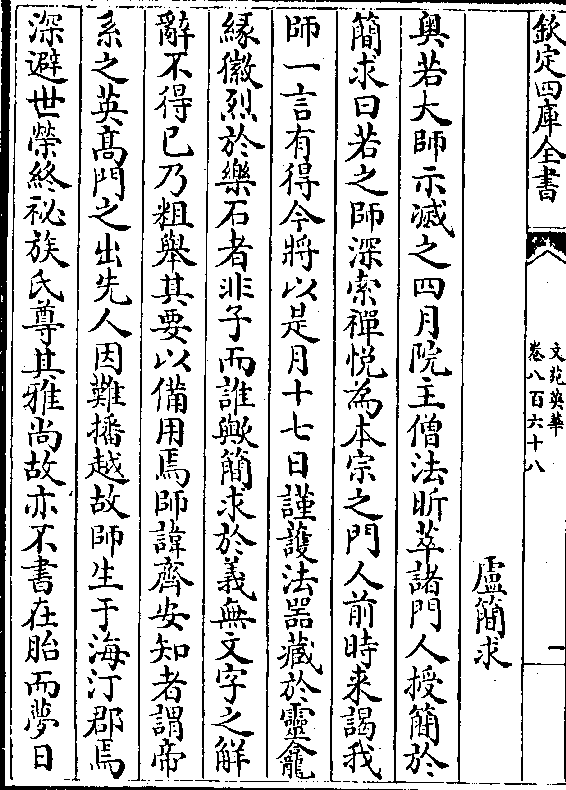 欽定四庫全書
文苑英華
卷八百六十八
一
盧簡求
奥若大師示滅之四月院主僧法昕萃諸門人授簡於
簡求曰若之師深索禪悦為本宗之門人前時来謁我
師一言有得今將以是月十七日謹護法器藏於靈龕
緣徽烈於樂石者非子而誰歟簡求於義無文字之解
辭不得已乃粗舉其要以備用焉師諱齊安知者謂帝
系之英髙門之出先人因難播越故師生于海汀郡焉
深避世榮終祕族氏尊其雅尚故亦不書在胎而夢日